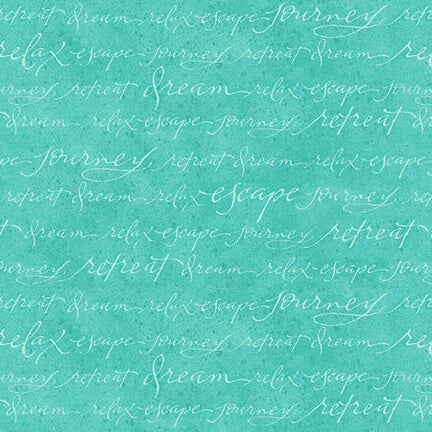 retreat dream relax escape journey retreat
relax escape journey retreat dream relax
journey retreat dream relax escape journey
dream relax escape journey retreat
journey retreat dream relax escape
retreat dream relax escape journey
dream relax escape journey retreat
journey retreat dream relax escape
retreat dream relax escape journey retreat
relax escape journey retreat dream relax
journey retreat dream relax escape journey
dream relax escape journey retreat